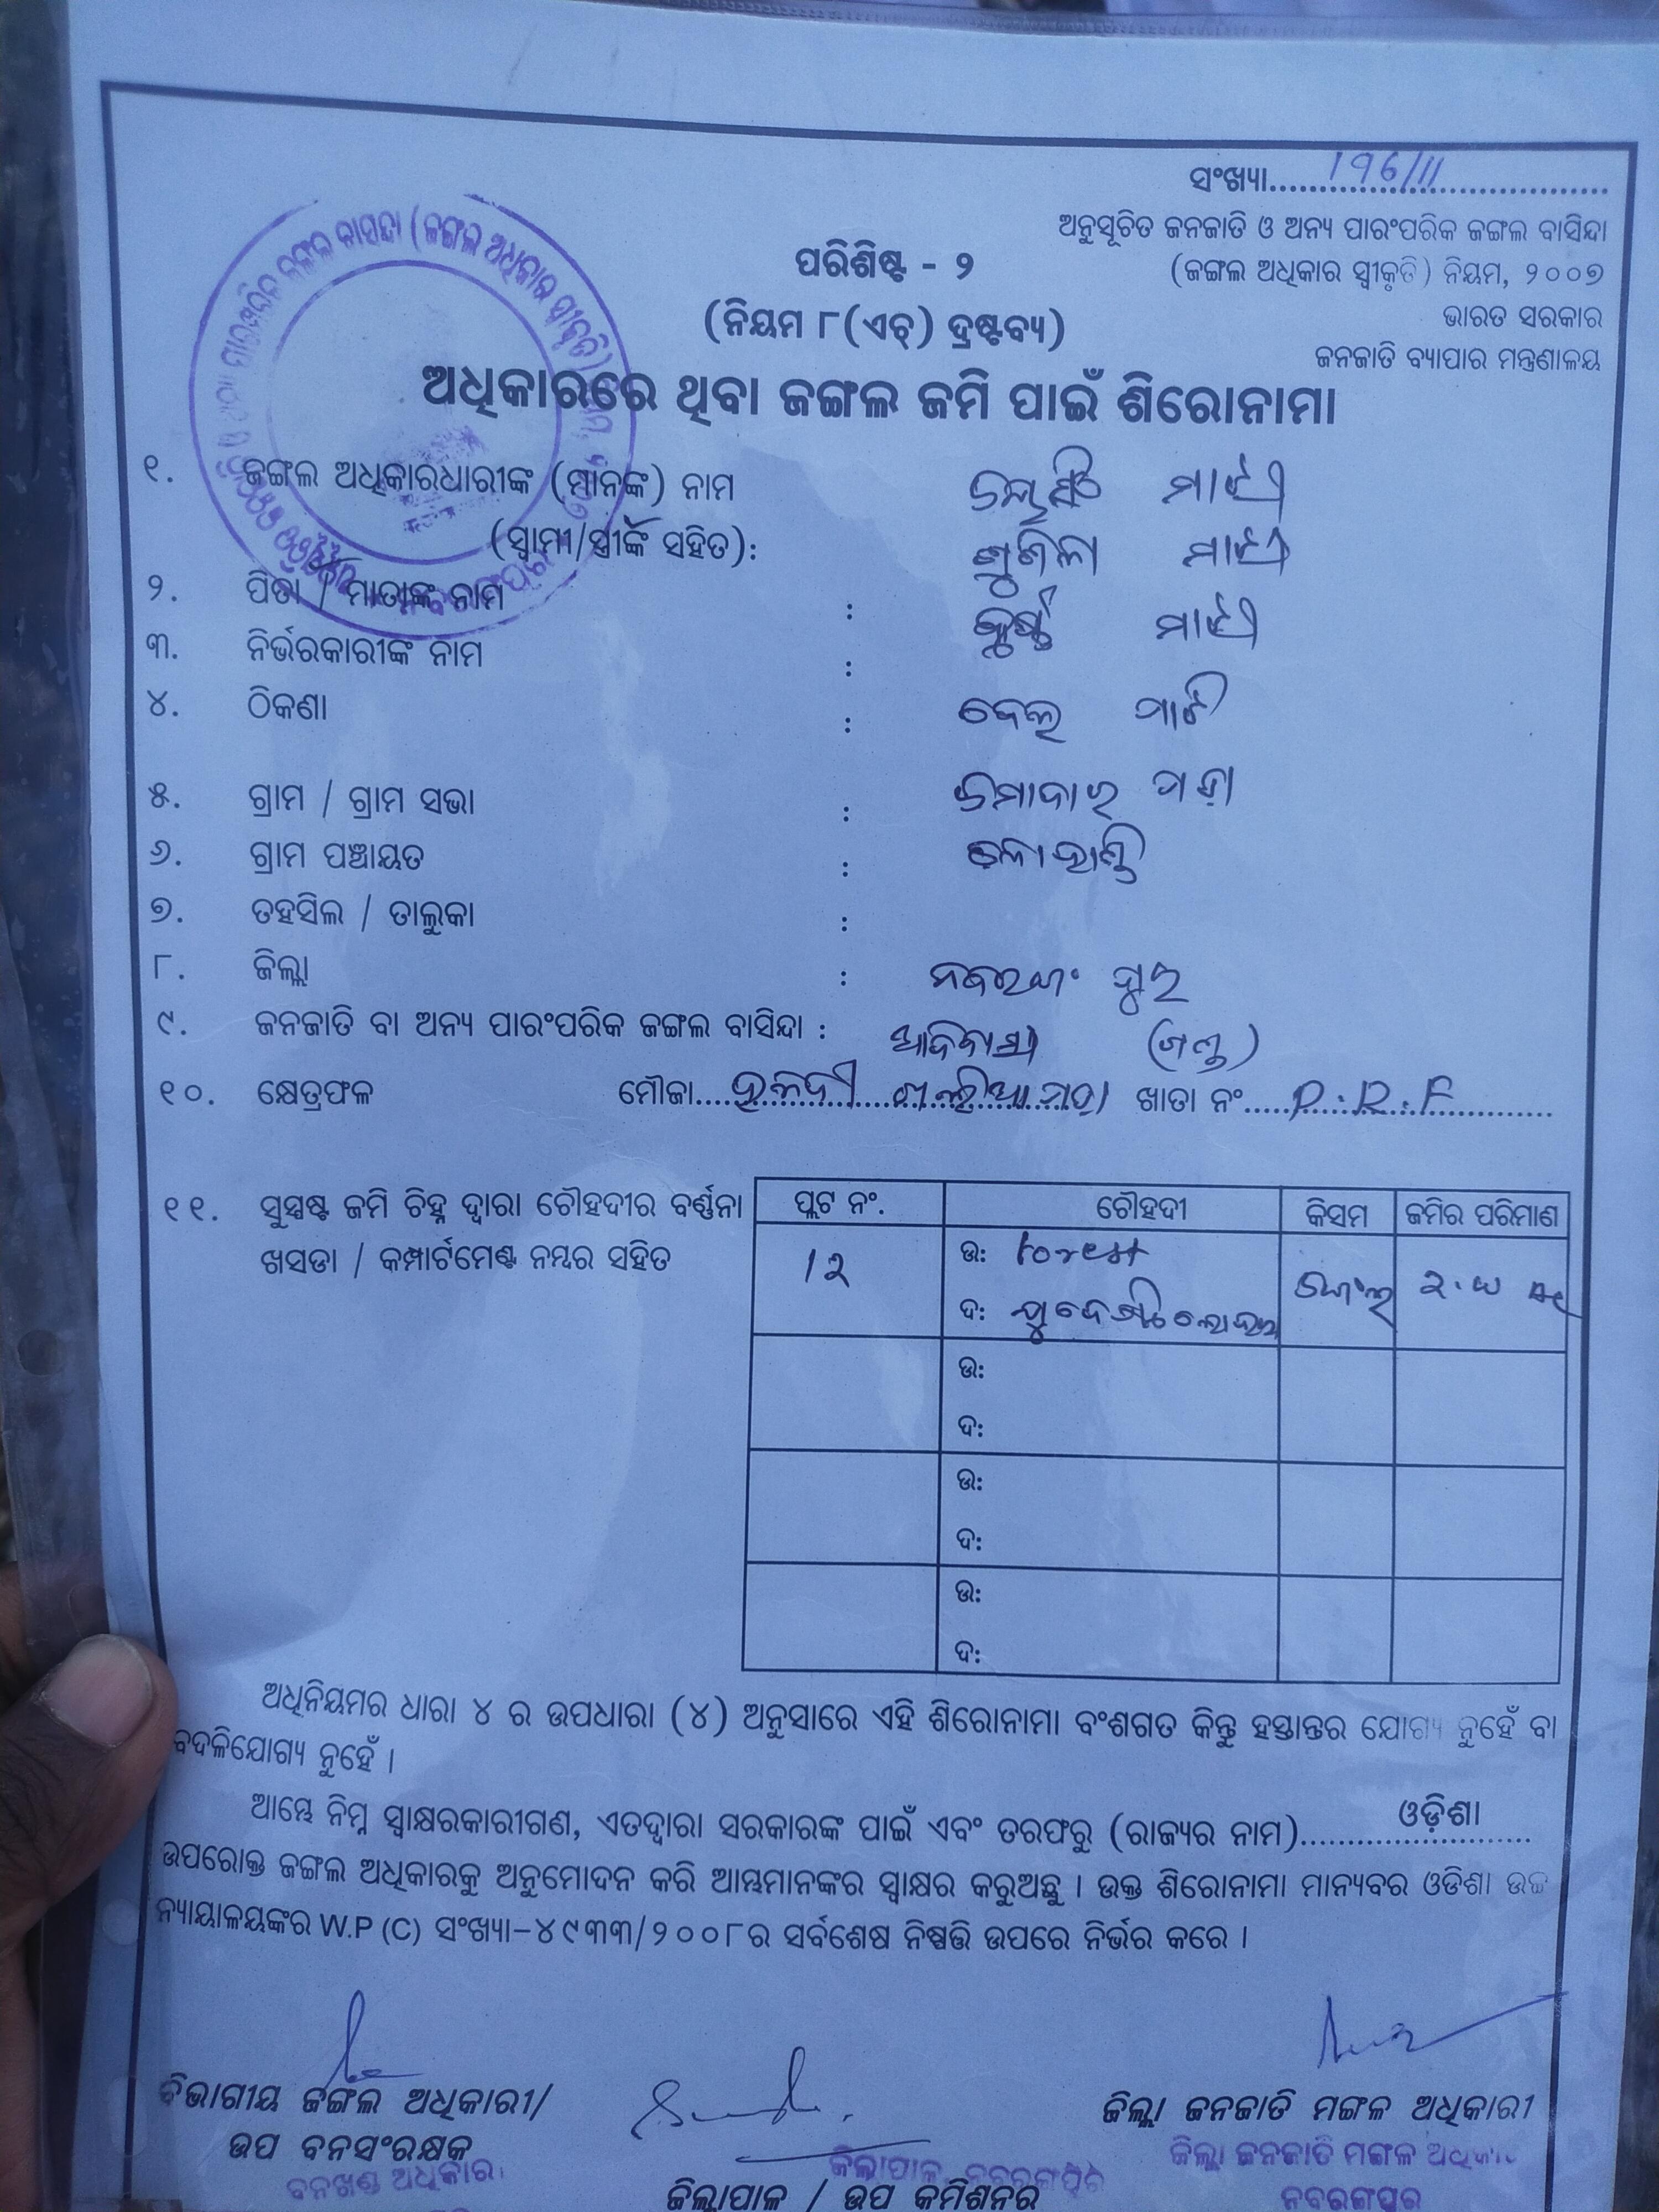 ସଂଖ୍ୟା..... 196/11
ଅନୁସୂଚିତ ଜନଜାତି ଓ ଅନ୍ୟ ପାରଂପରିକ ଜଙ୍ଗଲ ବାସିନ୍ଦା
(ଜଙ୍ଗଲ ଅଧିକାର ସ୍ୱୀକୃତି) ନିୟମ, ୨୦୦୭
ଭାରତ ସରକାର
ଜନଜାତି ବ୍ୟାପାର ମନ୍ତ୍ରଣାଳୟ
ପରିଶିଷ୍ଟ - ୨
(ନିୟମ ୮(ଏଚ୍) ଦ୍ରଷ୍ଟବ୍ୟ)
ଅଧିକାରରେ ଥିବା ଜଙ୍ଗଲ ଜମି ପାଇଁ ଶିରୋନାମା
୧. ଜଙ୍ଗଲ ଅଧିକାରଧାରୀଙ୍କ (ମାନଙ୍କ) ନାମ
(ସ୍ୱାମୀ/ସ୍ତ୍ରୀଙ୍କ ସହିତ):
୨. ପିତା / ମାତାଙ୍କ ନାମ :
୩. ନିର୍ଭରକାରୀଙ୍କ ନାମ :
୪. ଠିକଣା :
୫. ଗ୍ରାମ / ଗ୍ରାମ ସଭା :
୬. ଗ୍ରାମ ପଞ୍ଚାୟତ :
୭. ତହସିଲ / ତାଲୁକା :
୮. ଜିଲ୍ଲା : ନବରଙ୍ଗ ପୁର
୯. ଜନଜାତି ବା ଅନ୍ୟ ପାରଂପରିକ ଜଙ୍ଗଲ ବାସିନ୍ଦା : ଆଦିବାସୀ (ଗଣ୍ଡ)
୧୦. କ୍ଷେତ୍ରଫଳ ମୌଜା..... ଖାତା ନଂ..... P.R.F
୧୧. ସୁସ୍ପଷ୍ଟ ଜମି ଚିହ୍ନ ଦ୍ୱାରା ଚୌହଦୀର ବର୍ଣ୍ଣନା
ଖସଡା / କମ୍ପାର୍ଟମେଣ୍ଟ ନମ୍ବର ସହିତ
ପ୍ଲଟ ନଂ. ଚୌହଦୀ କିସମ ଜମିର ପରିମାଣ
12 ଉ: forest
ଦ:
ଉ:
ଦ:
ଉ:
ଦ:
ଉ:
ଦ:
ଅଧିନିୟମର ଧାରା ୪ ର ଉପଧାରା (୪) ଅନୁସାରେ ଏହି ଶିରୋନାମା ବଂଶଗତ କିନ୍ତୁ ହସ୍ତାନ୍ତର ଯୋଗ୍ୟ ନୁହେଁ ବା
ବଦଳିଯୋଗ୍ୟ ନୁହେଁ ।
ଆମ୍ଭେ ନିମ୍ନ ସ୍ୱାକ୍ଷରକାରୀଗଣ, ଏତଦ୍ଦ୍ୱାରା ସରକାରଙ୍କ ପାଇଁ ଏବଂ ତରଫରୁ (ରାଜ୍ୟର ନାମ)..... ଓଡ଼ିଶା
ଉପରୋକ୍ତ ଜଙ୍ଗଲ ଅଧିକାରକୁ ଅନୁମୋଦନ କରି ଆମ୍ଭମାନଙ୍କର ସ୍ୱାକ୍ଷର କରୁଅଛୁ । ଉକ୍ତ ଶିରୋନାମା ମାନ୍ୟବର ଓଡିଶା ଉଚ୍ଚ
ନ୍ୟାୟାଳୟଙ୍କର W.P (C) ସଂଖ୍ୟା-୪୯୩୩/୨୦୦୮ର ସର୍ବଶେଷ ନିଷ୍ପତ୍ତି ଉପରେ ନିର୍ଭର କରେ ।
ବିଭାଗୀୟ ଜଙ୍ଗଲ ଅଧିକାରୀ/
ଉପ ବନସଂରକ୍ଷକ
ବନଖଣ୍ଡ ଅଧିକାରୀ
ଜିଲ୍ଲାପାଳ, ନବରଙ୍ଗପୁର
ଜିଲ୍ଲାପାଳ / ଉପ କମିଶନର
ଜିଲ୍ଲା ଜନଜାତି ମଙ୍ଗଳ ଅଧିକାରୀ
ଜିଲ୍ଲା ଜନଜାତି ମଙ୍ଗଳ ଅଧିକାରୀ
ନବରଙ୍ଗପୁର